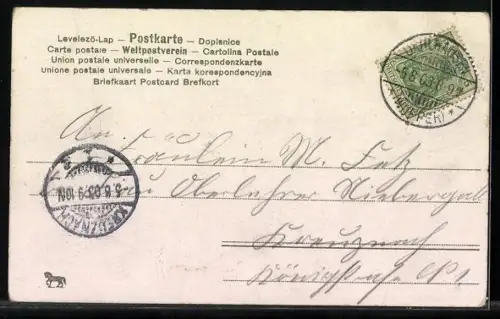 Levelező-Lap – Postkarte – Dopisnice
Carte postale – Weltpostverein – Cartolina Postale
Union postale universelle – Correspondenzkarte
Unione postale universale – Karta korespondencyjna
Briefkaart Postcard Brefkort
An
Fräulein M. Fetz
Oberlehrer Niebergall
Kreuznach
Königstraße No 1.
KREUZNACH
5 8 03 9-10N
(WUPPER)